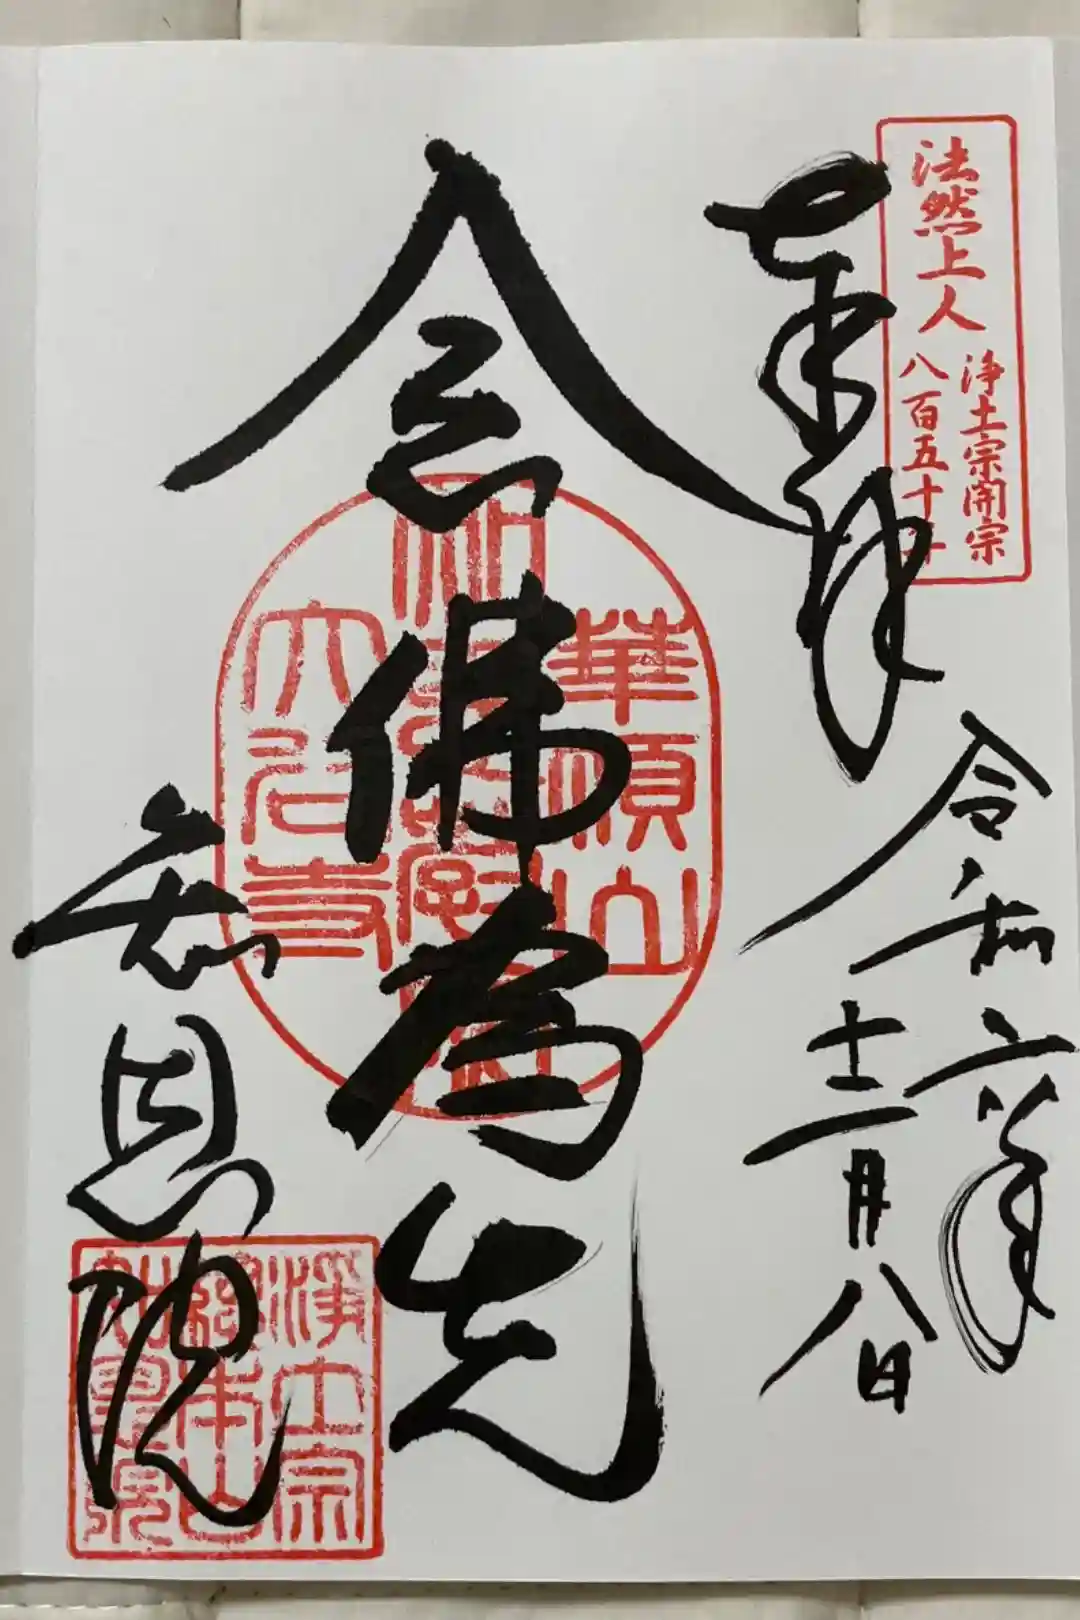 法然上人
浄土宗開宗
八百五十年
奉拝
令和六年
十二月八日
念佛為先
華頂山
大谷寺
知恩院
淨土宗
總本山
知恩院